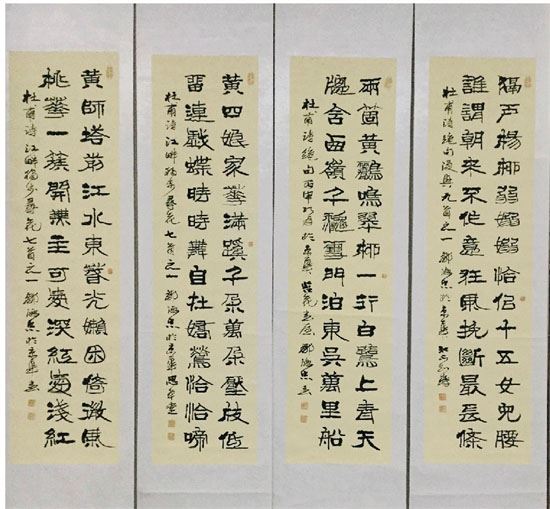 隔戶楊柳弱嫋嫋恰似十五女兒腰
誰謂朝來不作意狂風挽斷最長條
杜甫詩絕句漫興九首之一 於京華
兩箇黃鸝鳴翠柳一行白鷺上青天
牎含西嶺千龝雪門泊東吳萬里船
杜甫詩絕句丙申 於京華
黃四娘家華滿蹊千朵萬朵壓枝低
留連戲蝶時時舞自在嬌鶯恰恰啼
杜甫詩江畔獨步尋花七首之一 於京華
黃師塔前江水東春光懶困倚微風
桃華一簇開無主可愛深紅愛淺紅
杜甫詩江畔獨步尋花七首之一 於京華